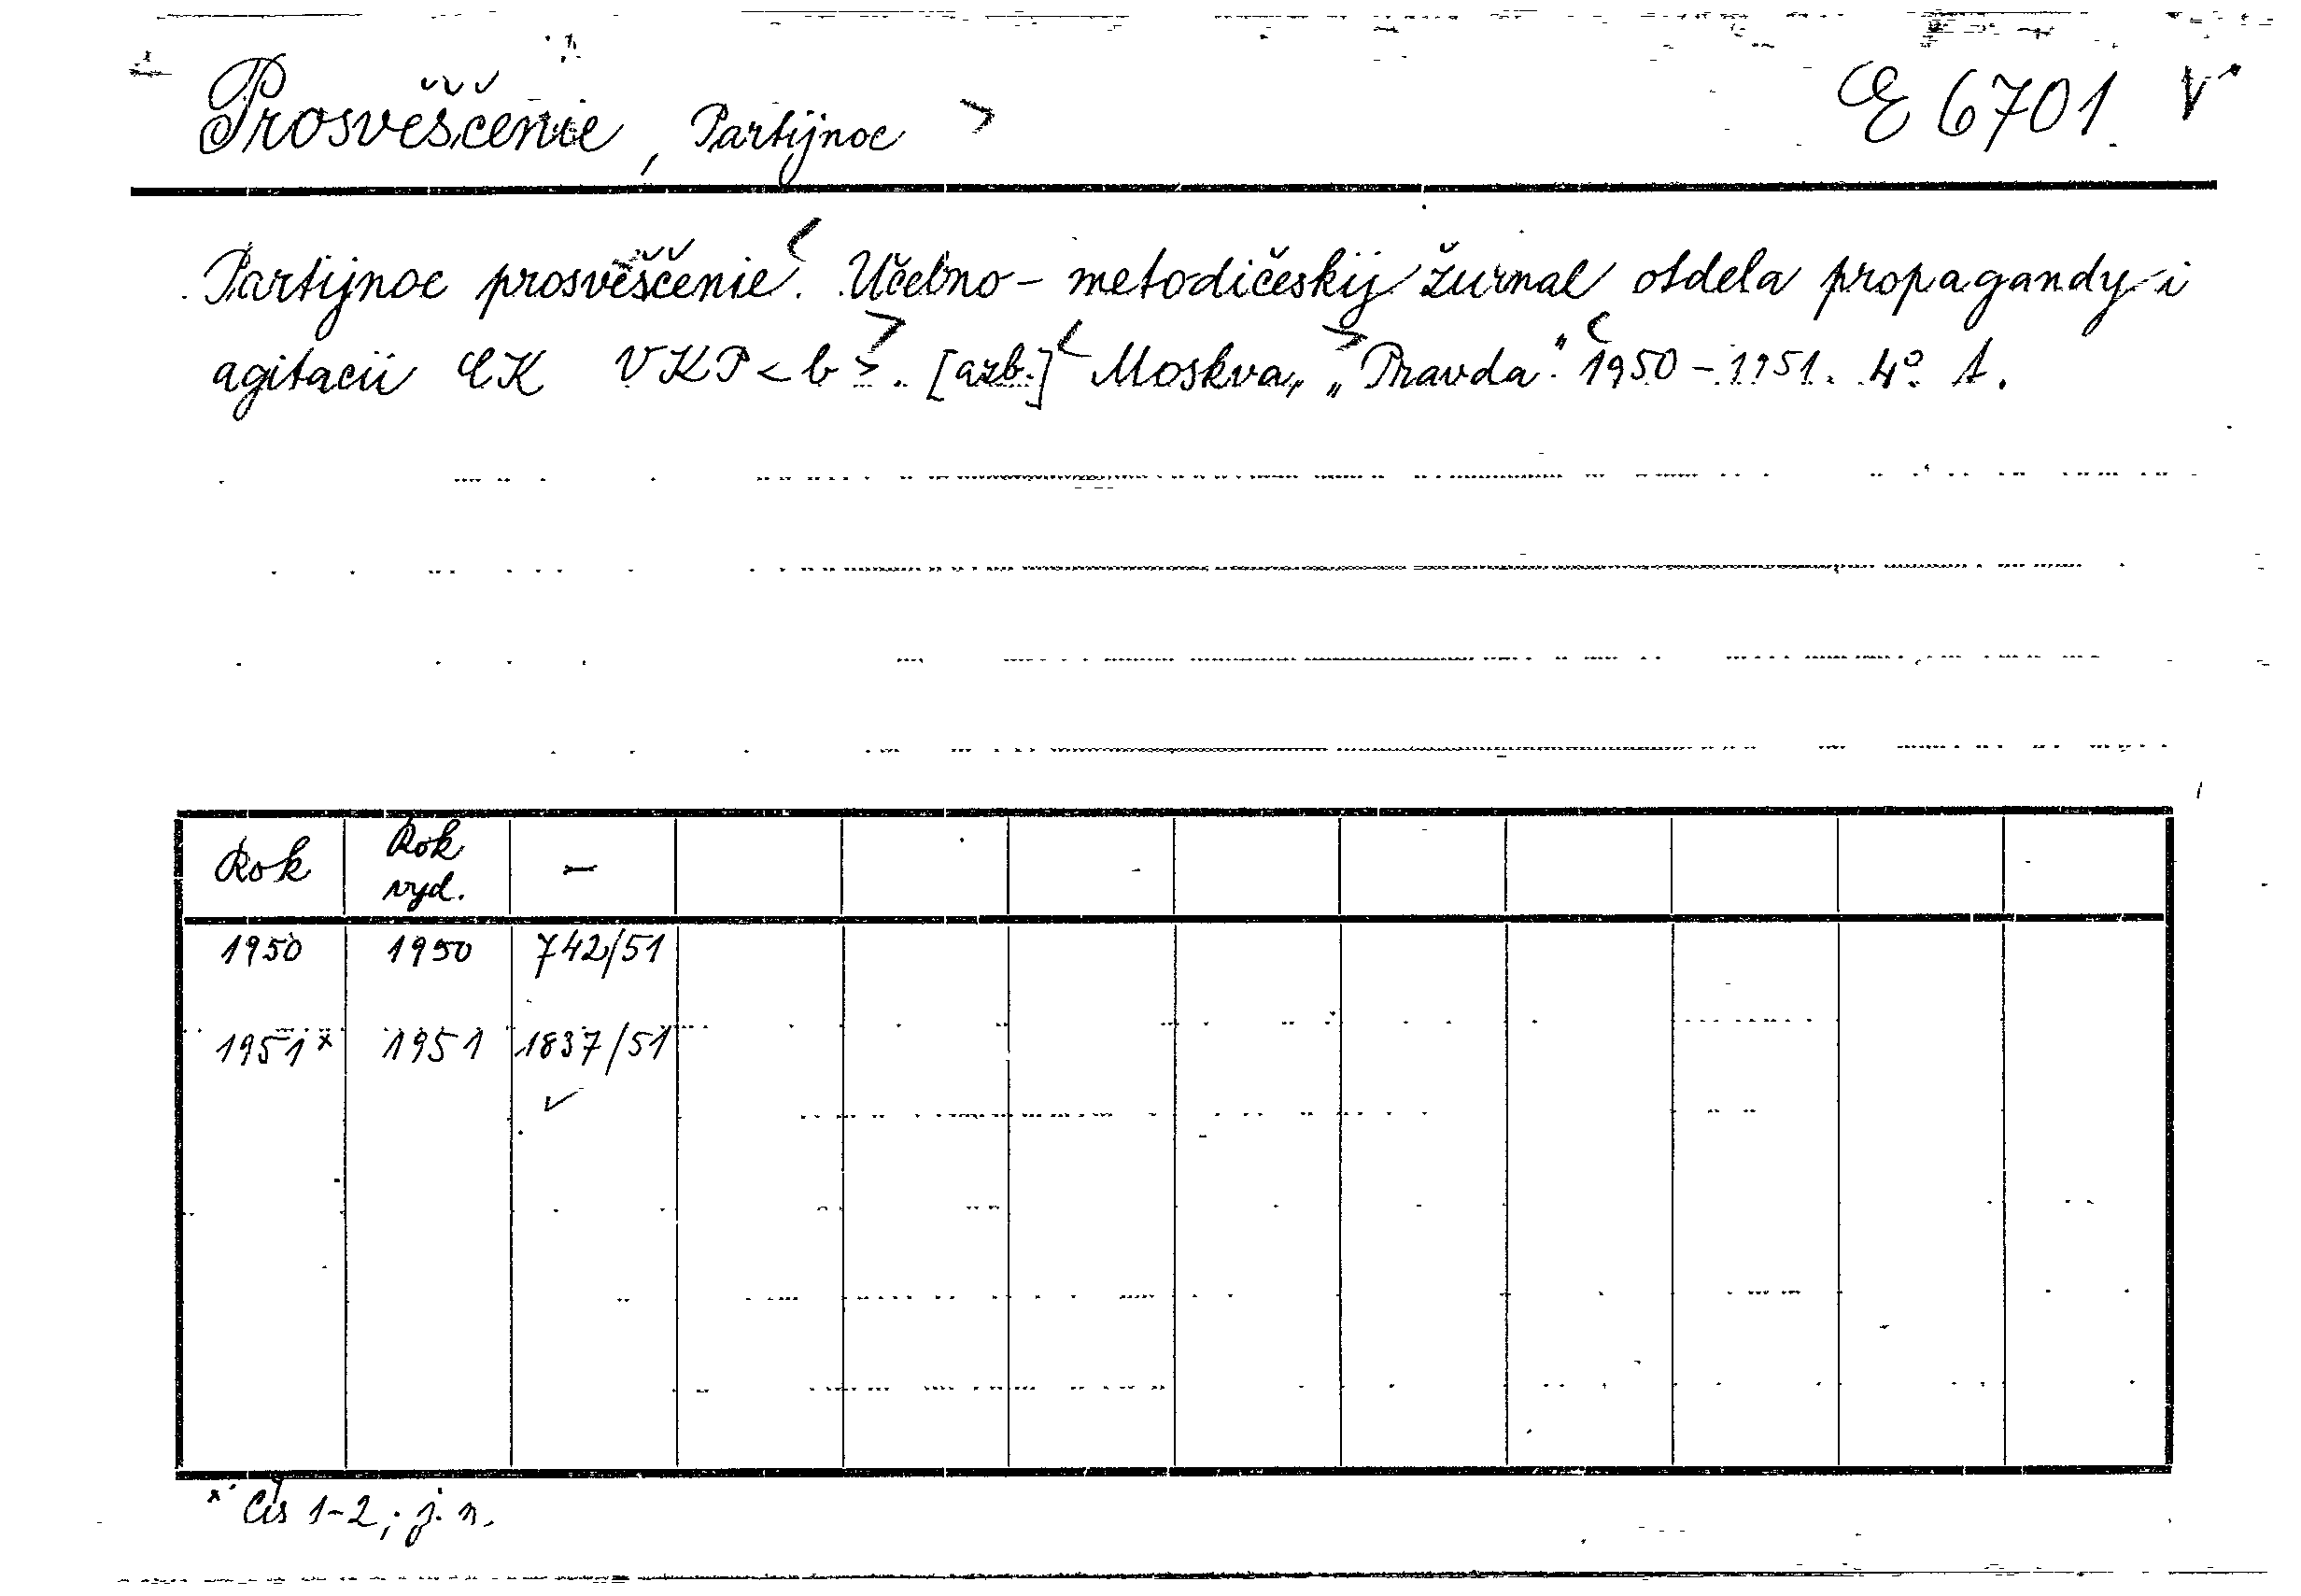 Prosvěščenie, Partijnoe > E 6701 V
Partijnoe prosvěščenie. Učebno-metodičeskij žurnal otdela propagandy i
agitacii CK VKP<b>. [azb.] Moskva, „Pravda“. 1950-1951. 4° A.
Rok Rok vyd. —
1950 1950 742/51
1951x 1951 1837/51
x čís 1-2; j. n.